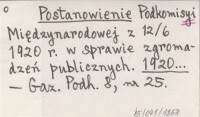 Postanowienie Podkomisyj
Międzynarodowej z 12/6
1920 r. w sprawie zgroma-
dzeń publicznych. 1920...
— Gaz. Podh. 8, nr 25.